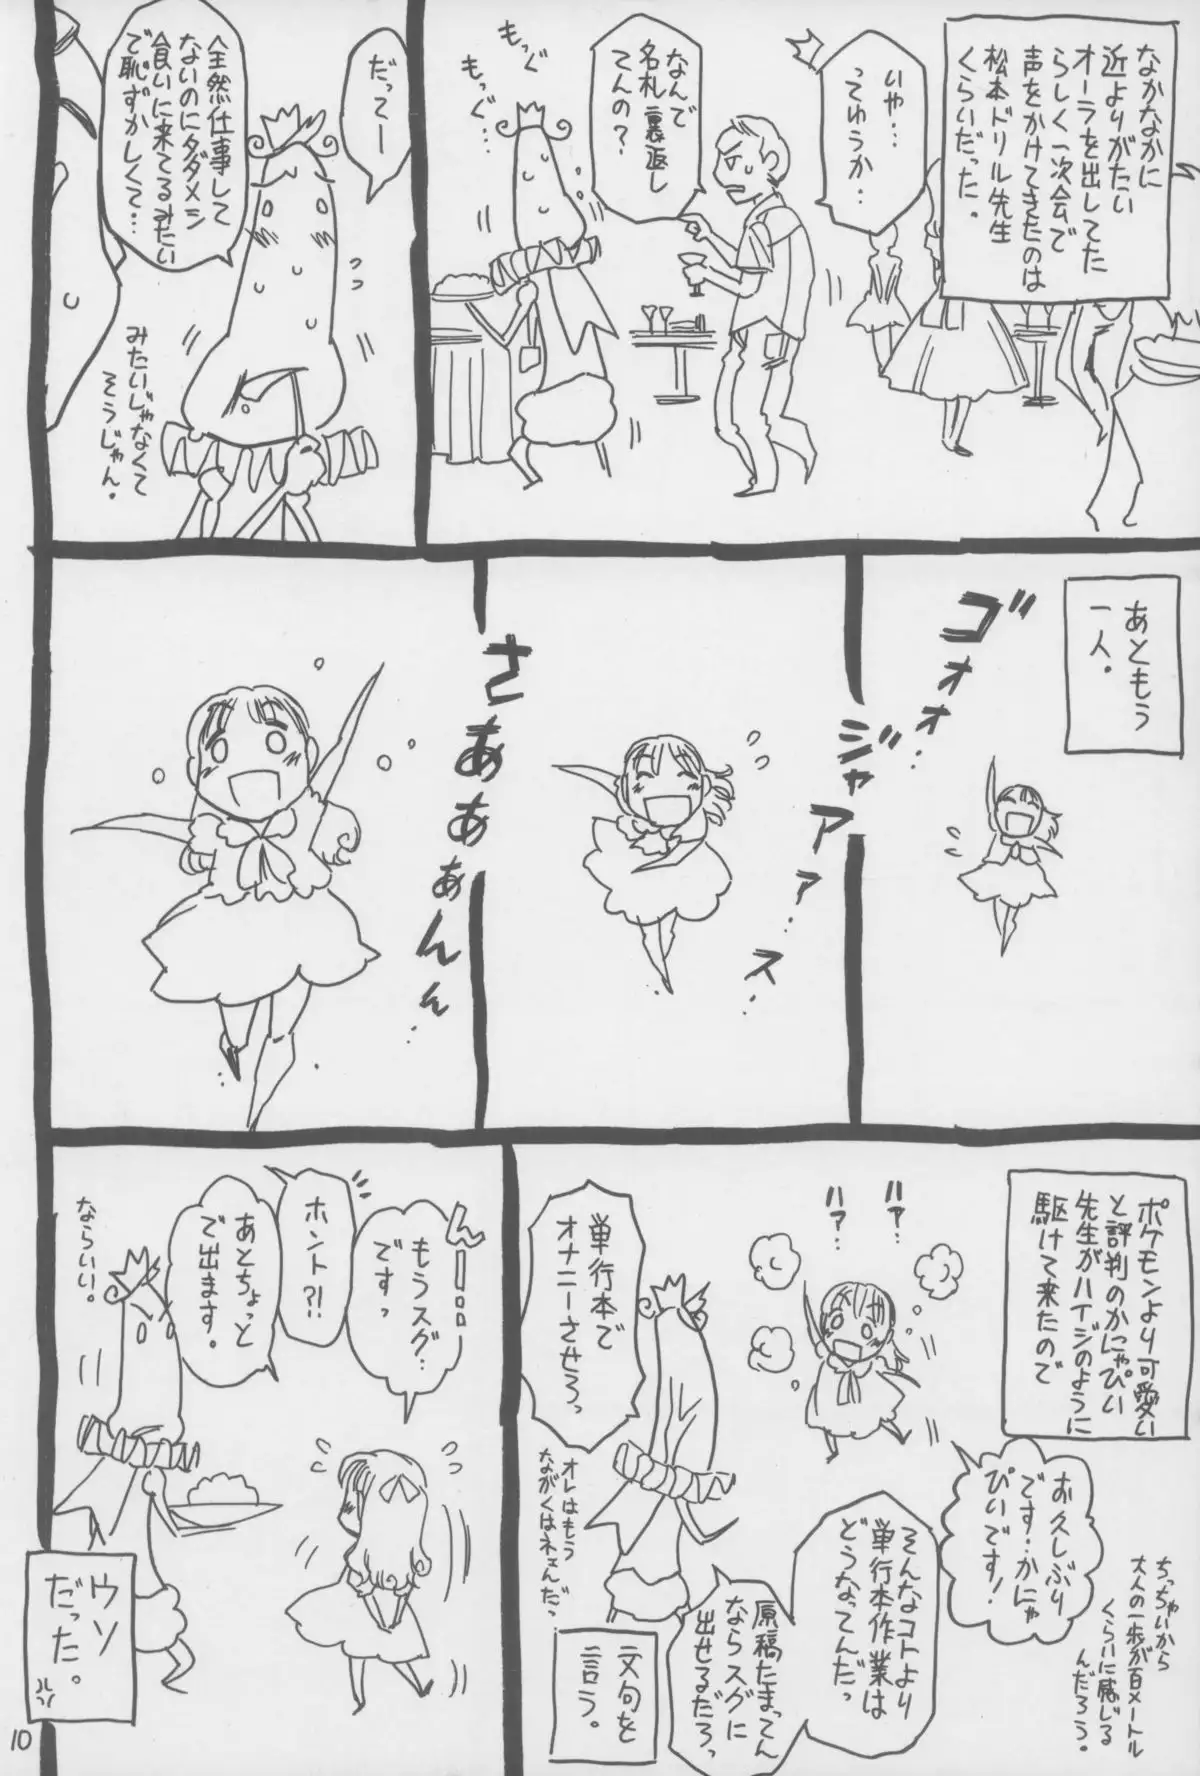 なかなかに
近よりがたい
オーラを出してた
らしく一次会で
声をかけてきたのは
松本ドリル先生
くらいだった。
いや…
ってゆうか…
なんで
名札裏返し
てんの?
もっぐ
もっぐ…
だってー
全然仕事して
ないのにタダメシ
食いに来てるみたい
で恥ずかしくて…
みたいじゃなくて
そうじゃん。
あともう
一人。
ゴォォ…
ジャアァァ…ス…
さぁぁぁんん…
ポケモンより可愛い
と評判のかにゃぴい
先生がハイジのように
駆けて来たので
ハァ…
ハァ…
お久しぶり
です…かにゃ
ぴいです!
ちっちゃいから
大人の一歩が百メートル
くらいに感じる
んだろう。
単行本で
オナニーさせろっ
オレはもう
ながくはネェんだっ
そんなコトより
単行本作業は
どうなってんだっ
原稿たまってん
ならスグに
出せるだろっ
文句を
言う。
んー…
もうスグ…
ですっ
ホント?!
あとちょっと
で出ます。
ならいい。
ウソ
だった。
10